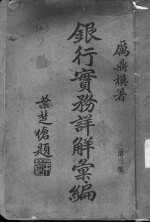 厲鼎模著
銀行實務詳解彙編
葉楚傖題